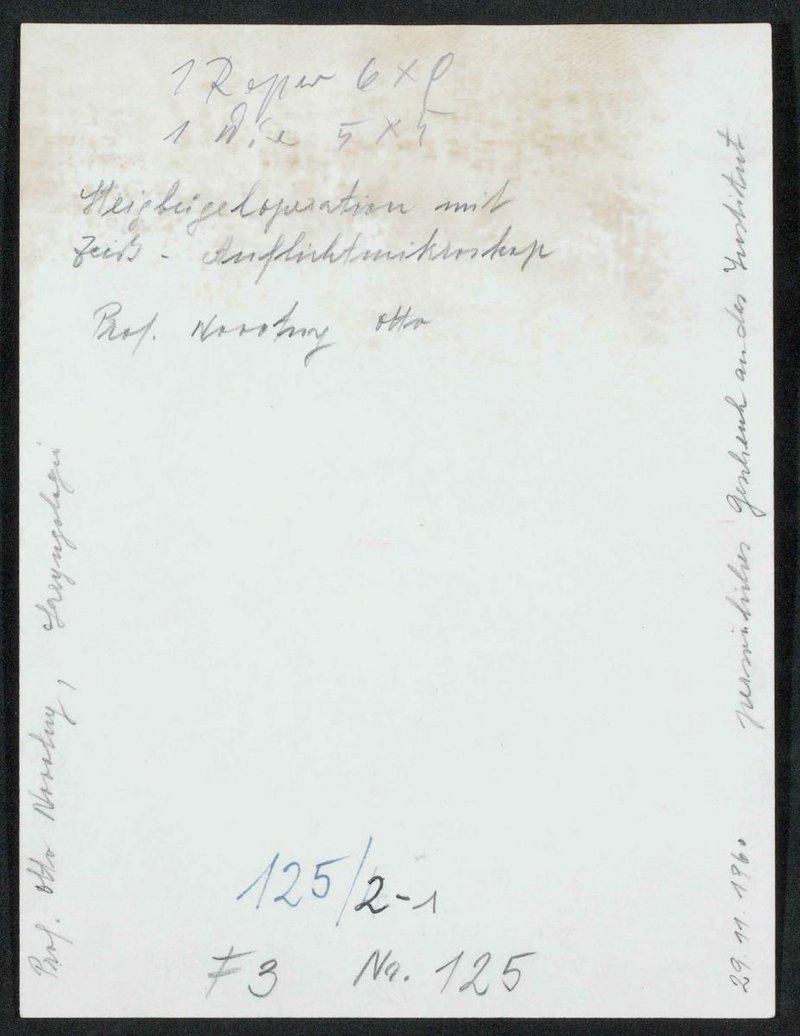 1 Repro 6 x 9
1 Dia 5 x 5
Steigbügeloperation mit
Zeiß - Auflichtmikroskop
Prof. Novotny Otto
Prof. Otto Novotny, Laryngologie
29. 11. 1960 persönliches Geschenk an das Institut
125/2-1
F3 Na. 125